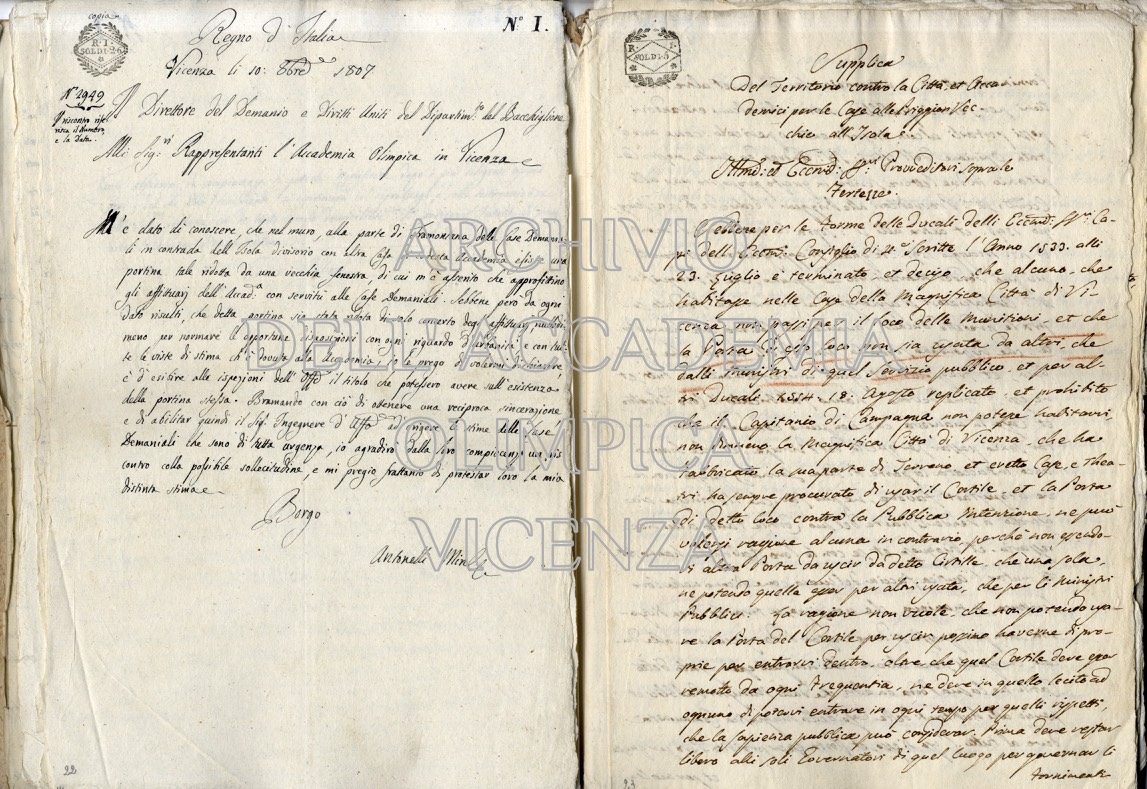 copia
R. I.
SOLDI 26
N.º I.
Regno d'Italia
Vicenza li 10: 8bre 1807
Nº 2949
Il riscontro rife-
risca il Numero,
e la Data.
Il Direttore del Demanio e Diritti Uniti del Dipartim.to del Bacchiglione
Alli Sig.ri Rappresentanti l'Accademia Olimpica in Vicenza
M'è dato di conoscere, che nel muro, alla parte di Tramontana delle Case Demania-
li in contrada dell'Isola divisorio con altra Casa di codesta Accademia esiste una
portina tale ridotta da una vecchia fenestra di cui m'è asserito che approfittino
gli affittuarj dell'Accad.a con servitù alle Case Demaniali. Sebbene però da ogni
dato risulti che detta portina sia stata ridotta di solo concerto degli affittuarj nulladi-
meno per normare le opportune disposizioni con ogni riguardo d'urbanità e con tut-
te le viste di stima ch'è dovuta all'Accademia, io la prego di volermi dichiarare
e di esibire alle ispezioni dell'Uff.o il titolo che potessero avere sull'esistenza
della portina stessa. Bramando con ciò di ottenere una reciproca sincerazione
e d'abilitar quindi il Sig. Ingegnere d'Uff.o ad erigere le stime delle Case
Demaniali che sono di tutta urgenza, io agradirò dalla loro compiacenza un ris-
contro colla possibile sollecitudine, e mi pregio frattanto di protestar loro la mia
distinta stima
Borgo
Antonelli
22
R. I.
SOLDI 5
Supplica
Del Territorio contro la Città, et Acca-
demici per le Case alle Priggion Vec-
chie all'Isola
Illmi: ed Eccmi: SS.ri Provveditori sopra le
Fortezze.
Sebbene per le Forme delle Ducali delli Eccmi: SS.ri Ca-
pi dell'Eccmo: Consiglio di X.ci Scritte l'Anno 1533. alli
23. Luglio è terminato, et deciso, che alcuno, che
habitasse nelle Case della Magnifica Città di Vi-
cenza non passi per il loco delle Munitioni, et che
la Porta di esso loco non sia usata da altri, che
dalli Ministri di quel servizio pubblico, et per al-
tri Ducali 1544. 18. Agosto replicato, et prohibito
che il Capitanio di Campagna non potesse habitarvi
non dimeno la Magnifica Città di Vicenza, che ha
fabbricato la sua parte di Terreno, et eretto Case, e Thea-
tri, ha sempre procurato di usar il Cortile, et la Porta
di detto loco contra la Pubblica Intenzione, ne può
valersi ragione alcuna in contrario, perchè non essendo-
vi altra Porta da uscir da detto Cortille, che una sola,
ne potendo quella esser per altri usata, che per li Ministri
Pubblici. La ragione non vuole, che non potendo usa-
re la Porta del Cortile per uscir possino haverne di pro-
prie per entrarvi dentro, oltre che quel Cortile deve esser
remotto da ogni Frequentia, ne deve in quello lecito ad
ognuno di potervi entrare in ogni tempo per quelli rispetti,
che la sapienza pubblica può considerar. Prima deve restar
libero alli soli Governatori di quel luogo per governar li
fornimenti
23
ARCHIVIO
DELL'ACCADEMIA
OLIMPICA
VICENZA